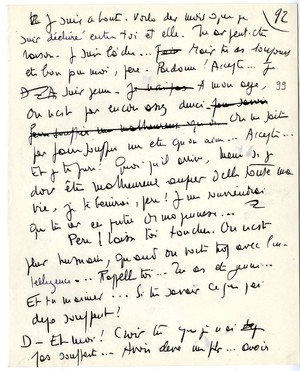 92
Je suis à bout. Voilà des mois que je
suis déchiré entre toi et elle. Tu as peut-être
raison. Je suis lâche... Mais tu as toujours
été bon pour moi, père. Pardonne! Accepte... Je
suis jeune. A mon âge, 99
On n'est pas encore assez durci
On ne doit
pas faire souffrir un être qu'on aime... Accepte...
Et je te jure! Quoi qu'il arrive, même si je
dois être malheureux auprès d'elle toute ma
vie, je te bénirai, père! Je me souviendrai
que tu as eu pitié de ma jeunesse...
Père! Laisse toi toucher. On n'est
plus humain, quand on voit avec l'in-
telligence... Rappelle toi... Tu as été jeune...
Et tu m'aimes... Si tu savais ce que j'ai
déjà souffert!
D - Et moi! Crois tu que je n'ai
pas souffert... Avoir élevé un fils... avoir